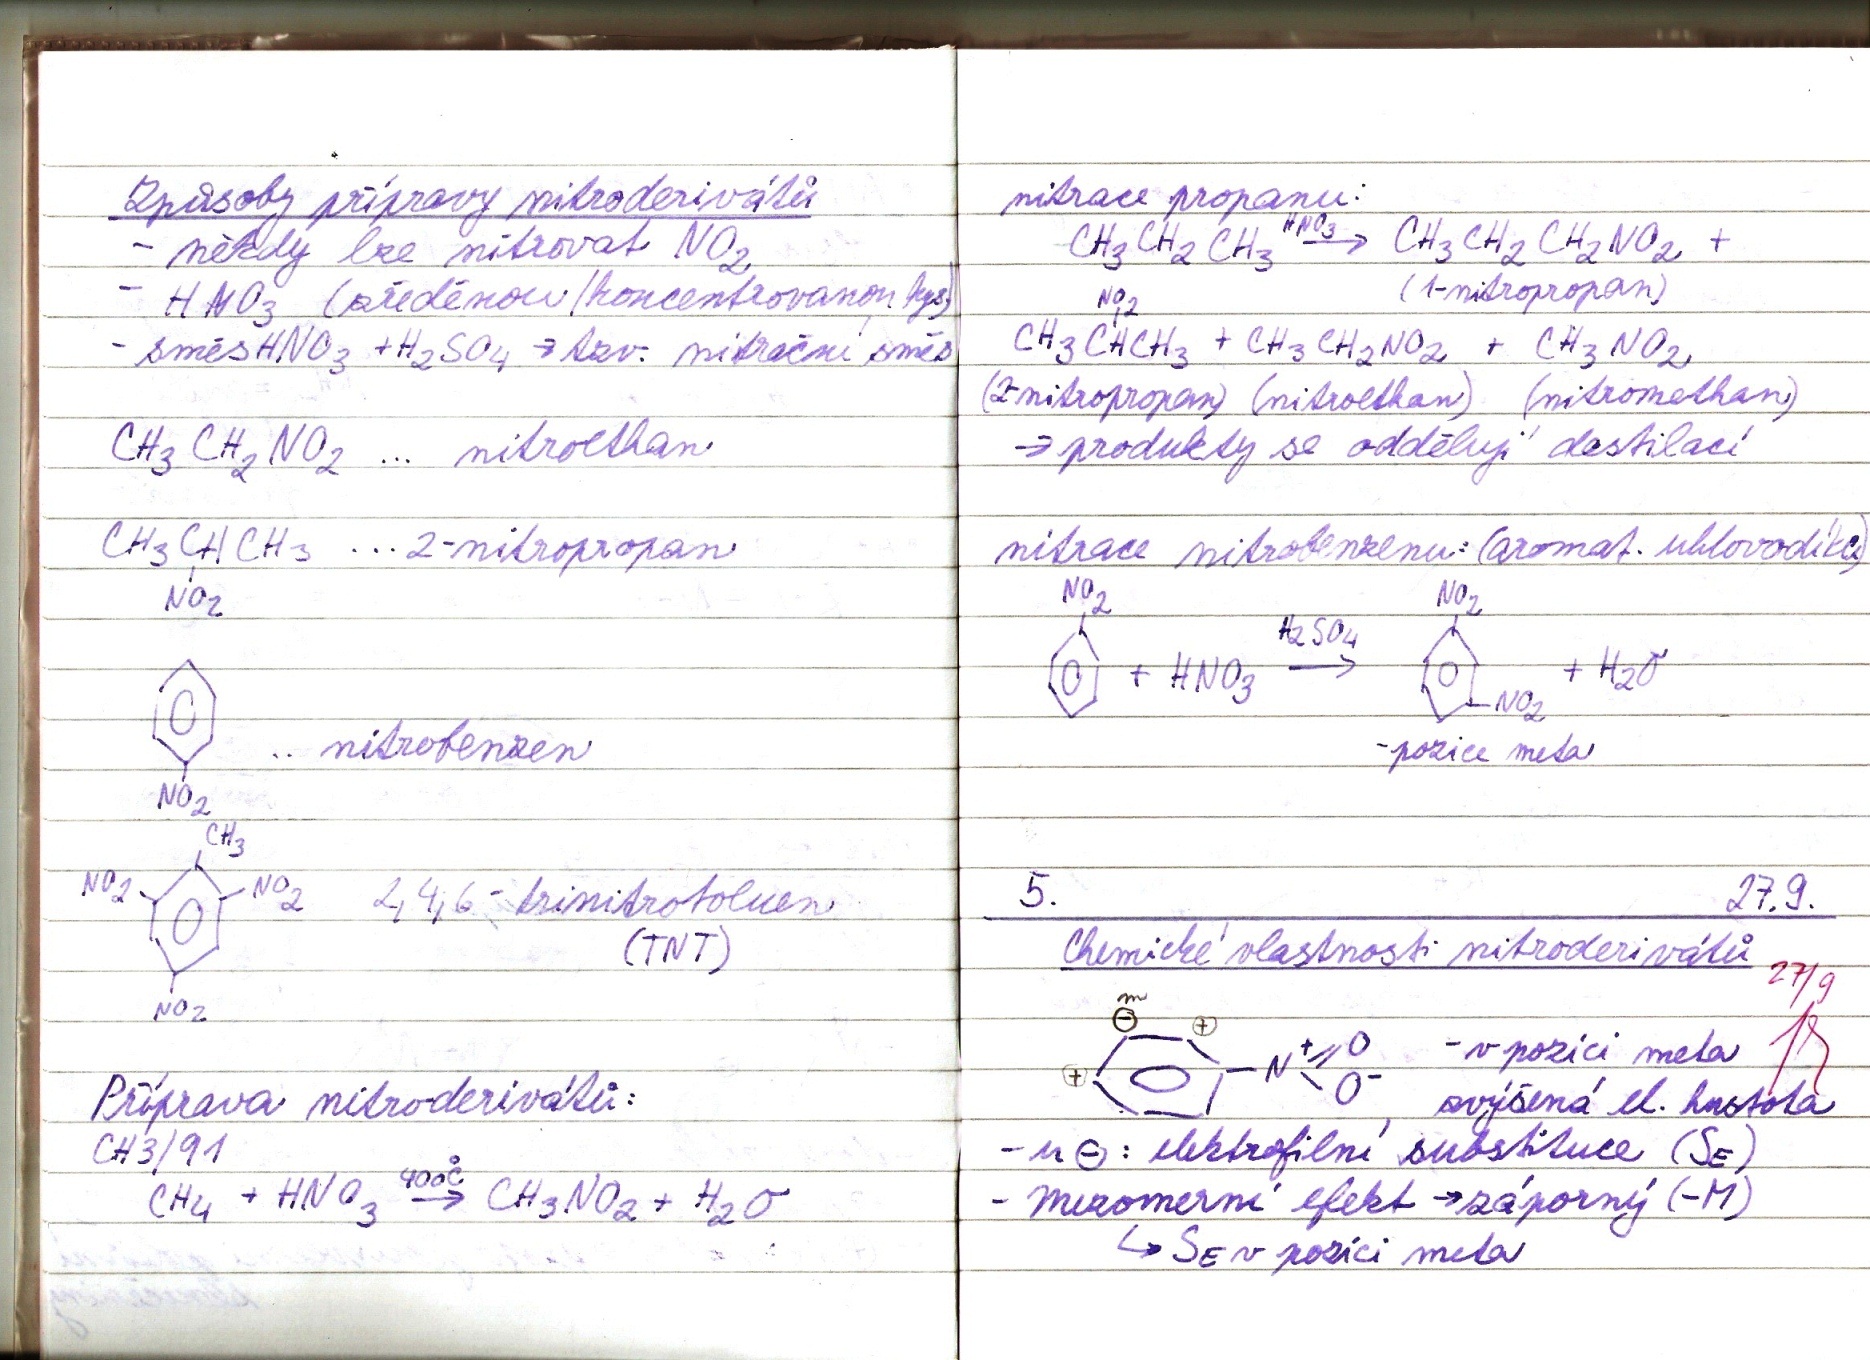 Způsoby přípravy nitroderivátů
- někdy lze nitrovat NO2
- HNO3 (zředěnou/koncentrovanou kys)
- směs HNO3 + H2SO4 → tzv. nitrační směs
CH3CH2NO2 ... nitroethan
CH3CHCH3 ... 2-nitropropan
NO2
.. nitrobenzen
NO2
CH3
NO2 NO2 2,4,6-trinitrotoluen
(TNT)
NO2
Příprava nitroderivátů:
CH3/91
400°C
CH4 + HNO3 → CH3NO2 + H2O
nitrace propanu:
HNO3
CH3CH2CH3 → CH3CH2CH2NO2 +
(1-nitropropan)
NO2
CH3CHCH3 + CH3CH2NO2 + CH3NO2
(2-nitropropan) (nitroethan) (nitromethan)
→ produkty se oddělují destilací
nitrace nitrobenzenu: (aromat. uhlovodíků)
NO2 NO2
H2SO4
+ HNO3 → + H2O
NO2
- pozice meta
5. 27.9.
Chemické vlastnosti nitroderivátů
27/9
m
⊖ ⊕
⊕ N+ O O- - v pozici meta
zvýšená el. hustota
- u ⊖: elektrofilní substituce (SE)
- mezomerní efekt → záporný (-M)
↳ SE v pozici meta